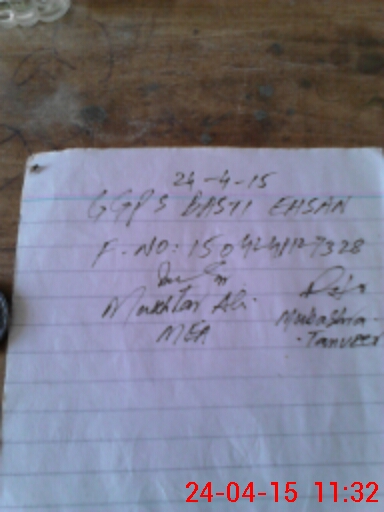 24-4-15
GGPS BASTI EHSAN
F-NO:
Mukhtar Ali.
MEA
Mubashra-
-Tanveer
24-04-15 11:32